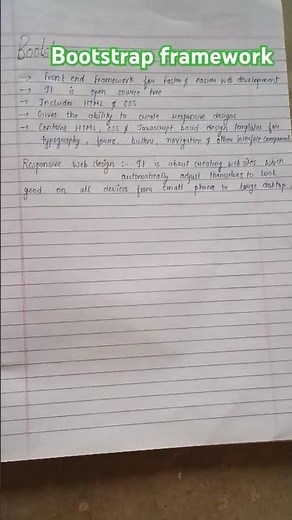 Boots
Bootstrap framework
→ Front end framework for faster & easier web development
→ It is open source free
→ Includes HTML & CSS
→ Gives the ability to create responsive designs
→ Contains HTML, CSS & Javascript based design templates for
typography, forms, buttons, navigation & other interface components
Responsive Web design :- It is about creating web sites which
automatically adjust themselves to look
good on all devices from small phones to large desktop.